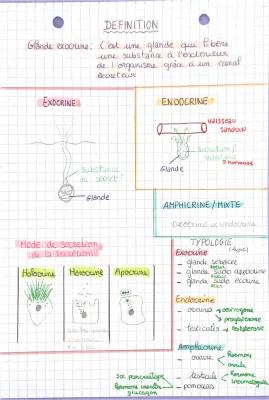 DEFINITION
Glande exocrine: C'est une glande qui libère
une substance à l'extérieur
de l'organisme grâce à un canal
excréteur
EXOCRINE
substance
ou
Glande
ENDOCRINE
VAISSEAU
SANGUIN
Glande
hormones
AMPHICRINE/MIXTE
exocrine et endocrine
Mode de secretion
de la secretion
Holocrine
Merocrine
Apocrine
TYPOLOGIE
Exocrine
- glande sebacée
- glande sudo apocrine
- glande sudo eccrine
Endocrine
- ovaires
→ oestrogene
→ progesterone
- testicules → testosterone
Amphicrine
- ovaire
→ hormone
→ ovule
- testicule
→ hormone
→ spermatozoïde
- pancreas
suc pancreatique
hormone insuline
glucagon